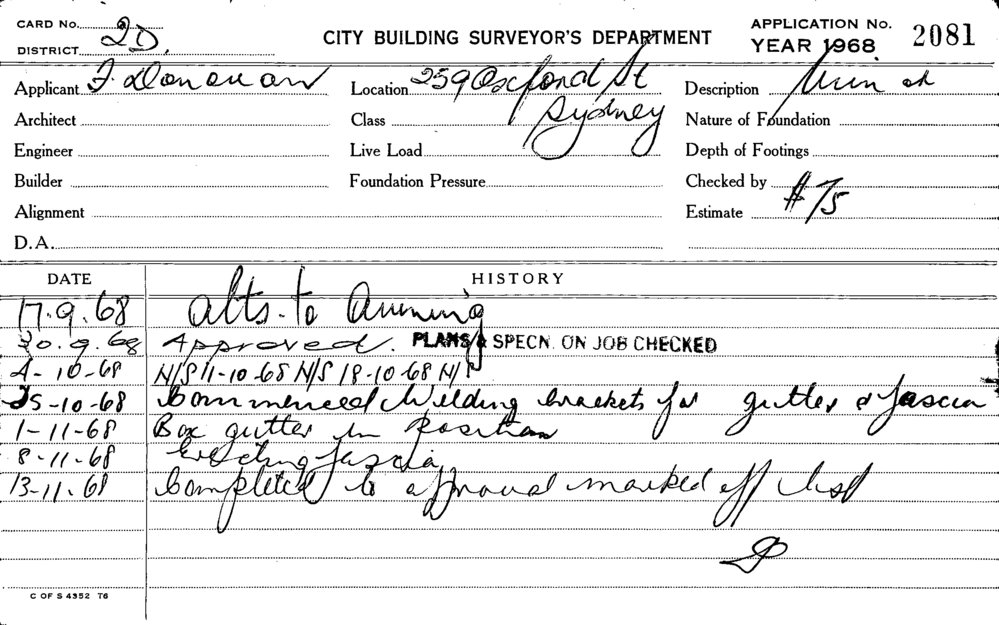 CARD No.
DISTRICT 2D.
CITY BUILDING SURVEYOR'S DEPARTMENT
APPLICATION No. 2081
YEAR 1968
Applicant F. Donovan Location 259 Oxford St Description Min alt
Architect Class Sydney Nature of Foundation
Engineer Live Load Depth of Footings
Builder Foundation Pressure Checked by
Alignment Estimate $75
D.A.
DATE HISTORY
17.9.68 Alts. to Awning
30.9.68 Approved. PLANS & SPECN. ON JOB CHECKED
4-10-68 N/S 11-10-68 N/S 18-10-68 N/S
25-10-68 Commenced Welding brackets for gutter & fascia
1-11-68 Box gutter in position
8-11-68 Erecting fascia
13-11-68 Completed to approval marked off list
C OF S 4352 76